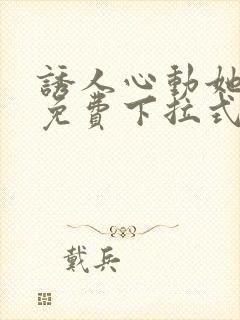 誘人心動她
免費下拉式
戴兵